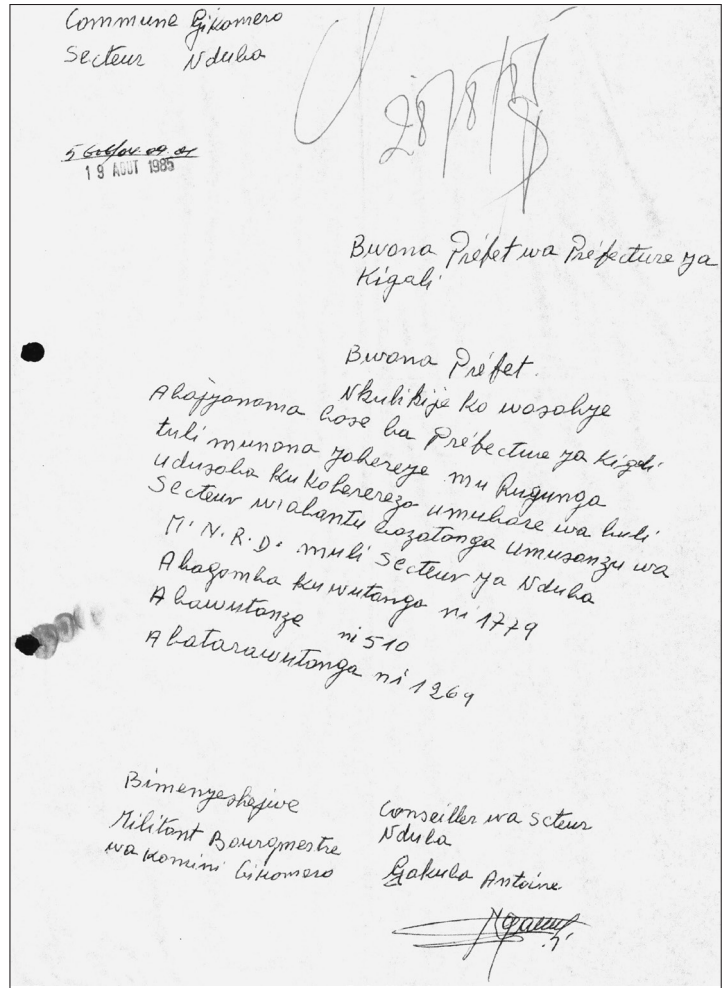 Commune Gikomero
Secteur Nduba
28/8/85
19 AOUT 1985
Bwana Préfet wa Préfecture ya
Kigali
Bwana Préfet.
Nkulikije ko wasabye
Abajyanama bose ba Préfecture ya Kigali
tuli munama yabereye mu Rugunga
udusaba kukoherereza umubare wa buli
Secteur w'abantu bazatanga umusanzu wa
M.N.R.D. muli Secteur ya Nduba
Abagomba kuwutanga ni 1779
Abawutanze ni 510
Abatarawutanga ni 1269
Bimenyeshejwe
Militant Bourgmestre
wa Komini Gikomero
Conseiller wa Scteur
Nduba
Gakuba Antoine